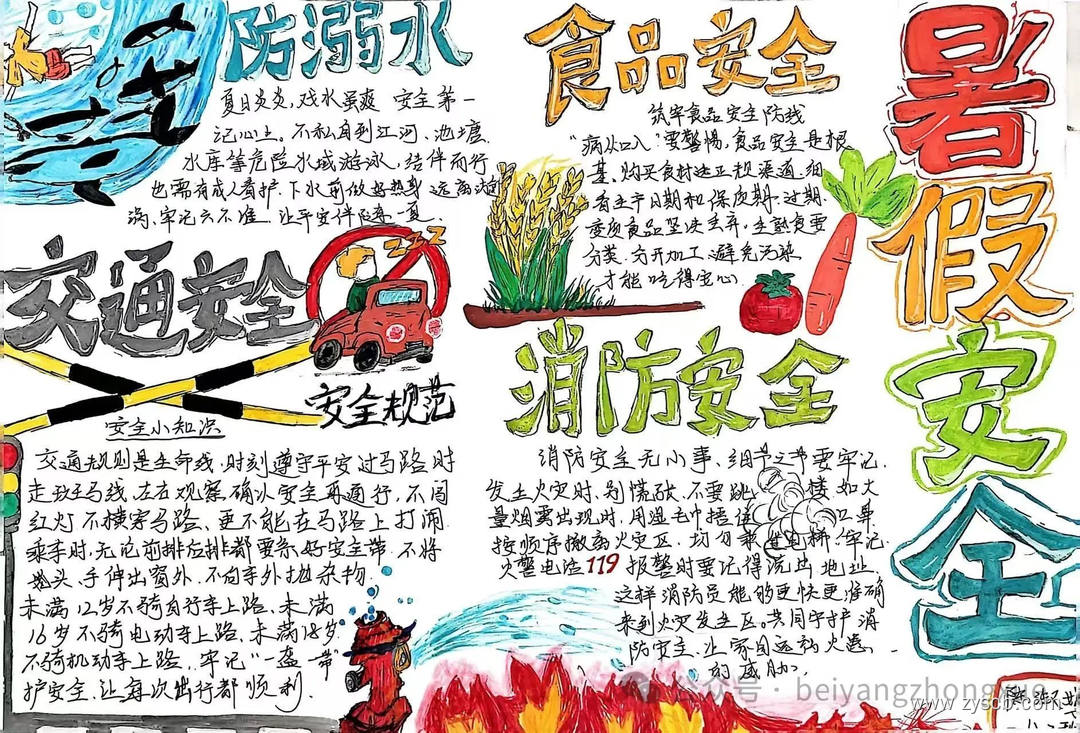 防溺水
夏日炎炎,戏水虽爽 安全第一
记心上。不私自到江河、池塘、
水库等危险水域游泳,结伴而行
也需有成人看护.下水前做好热身 远离
涡、牢记六不准、让平安伴随一夏.
交通安全
安全规范
安全小知识
交通规则是生命线,时刻遵守平安过马路时
走斑马线、左右观察确认安全再通行,不闯
红灯不横穿马路、更不能在马路上打闹
乘车时,无论前排后排都要系好安全带.不将
头、手伸出窗外,不向车外抛杂物.
未满12岁不骑自行车上路、未满
16岁不骑电动车上路、未满18岁
不骑机动车上路、牢记“一盔一带”
护安全.让每次出行都顺利.
食品安全
筑牢食品安全防线
“病从口入”要警惕,食品安全是根
基.购买食材选正规渠道.细
看生产日期和保质期、过期、
变质食品坚决丢弃.生熟食要
分装、分开加工、避免污染
才能吃得安心.
消防安全
消防安全无小事、细节之节要牢记.
发生火灾时,别慌张、不要跳楼、如大
量烟雾出现时,用湿毛巾捂住口鼻
按顺序撤离火灾区.切勿乘坐电梯.牢记
火警电话119报警时要记得说出地址
这样消防员能够更快更准确
来到火灾发生区。共同守护消
防安全、让家园远祸火患.
暑假安全
公众号·beiyangzhong
www.zyscb.com